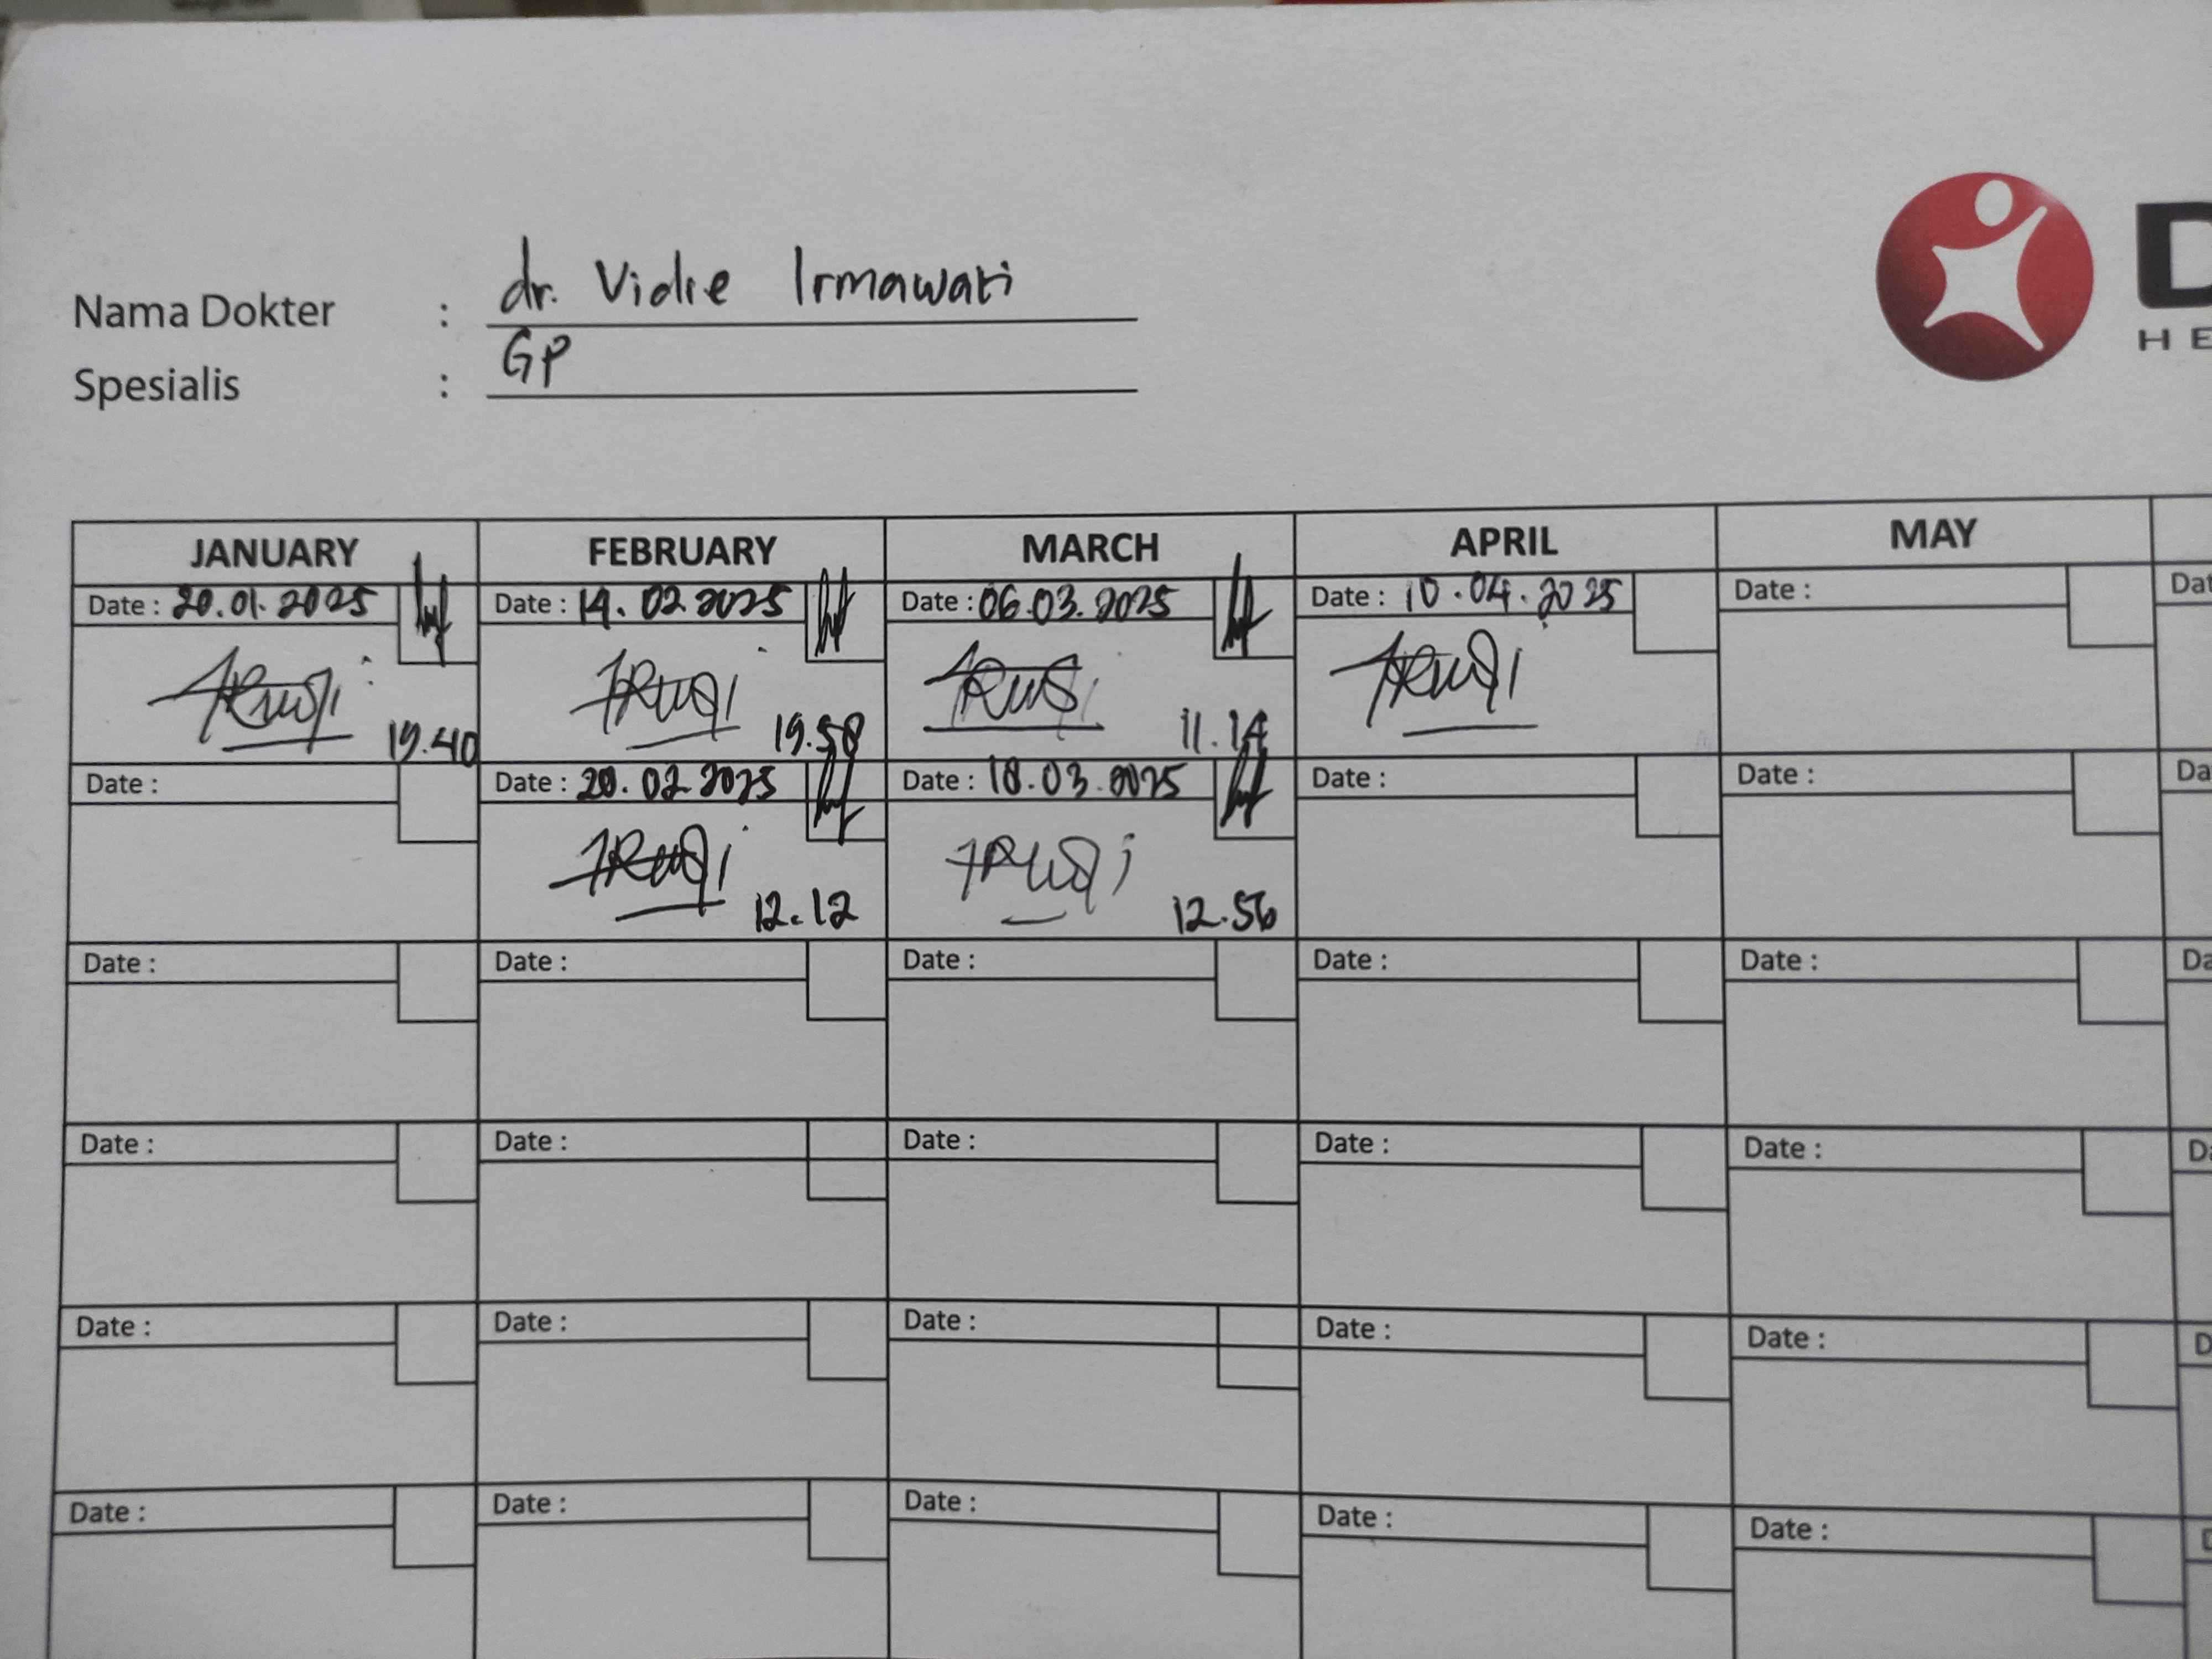 Nama Dokter : dr. Vidie Irmawati
Spesialis : GP
D
HE
JANUARY FEBRUARY MARCH APRIL MAY
Date : 20.01.2025 Date : 14.02.2025 Date : 06.03.2025 Date : 10.04.2025 Date : Dat
19.40 19.58 11.14
Date : Date : 20.02.2025 Date : 18.03.2025 Date : Date : Da
12.12 12.56
Date : Date : Date : Date : Date : Da
Date : Date : Date : Date : Date : Da
Date : Date : Date : Date : Date : D
Date : Date : Date : Date : Date : D